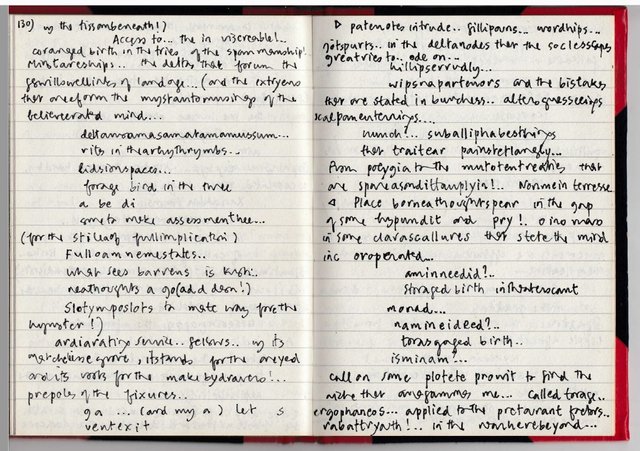 130) in the tissombeneath!)
Access to... the in viscreable!..
coranged birth in the tries of the sponmanship!
Minstareships... the deltas that forum the
gowillowellinks of land age... (and the
that oneeform the of the
believeerated mind...
deltamoramasamatamamussum...
rits in the
kidsionspaces...
forage bird in the three
a be di
some to make assessment hee...
(for the of full implication)
Fulloamnemestates..
what sees barrens is
neathoughts a go (add dean!)
Slotymposlots to mate way for the
!)
ardiarating service.. fellows.. in its
grove, it stands for the areyed
and its roots for the make bydravers!...
prepoles of the fixures..
ga ... (and my a) let s
ventexit
▷ patenotes intrude.. fillipauns... wordhips...
jotspurts.. in the deltanodes that the soclesscapes
greatries to.. ode on...
hillipserrudly...
wipsnapartonors and the bistakes
that are stated in burchess.. alterguesseeings
scalpamenterings....
hunch!... suballiphabesthings
that traitear painstetlangly...
from polygia to the mutotentreaties, that
are !.. Nonmein terresse
◁ Place borneathoughtspear in the gap
of some hypundit and pry!. O ino mars
in some clavascallures that stete the mind
inc oroperated...
aminneedid?..
storaged birth in theaterscant
monad...
namineideed?..
torasgaged birth..
isminam?...
call on some plotete prowit to find the
niche that anagrammes me... called torage..
ergophaneos... applied to the fretors..
rabattryath!... in the nowherebeyond...